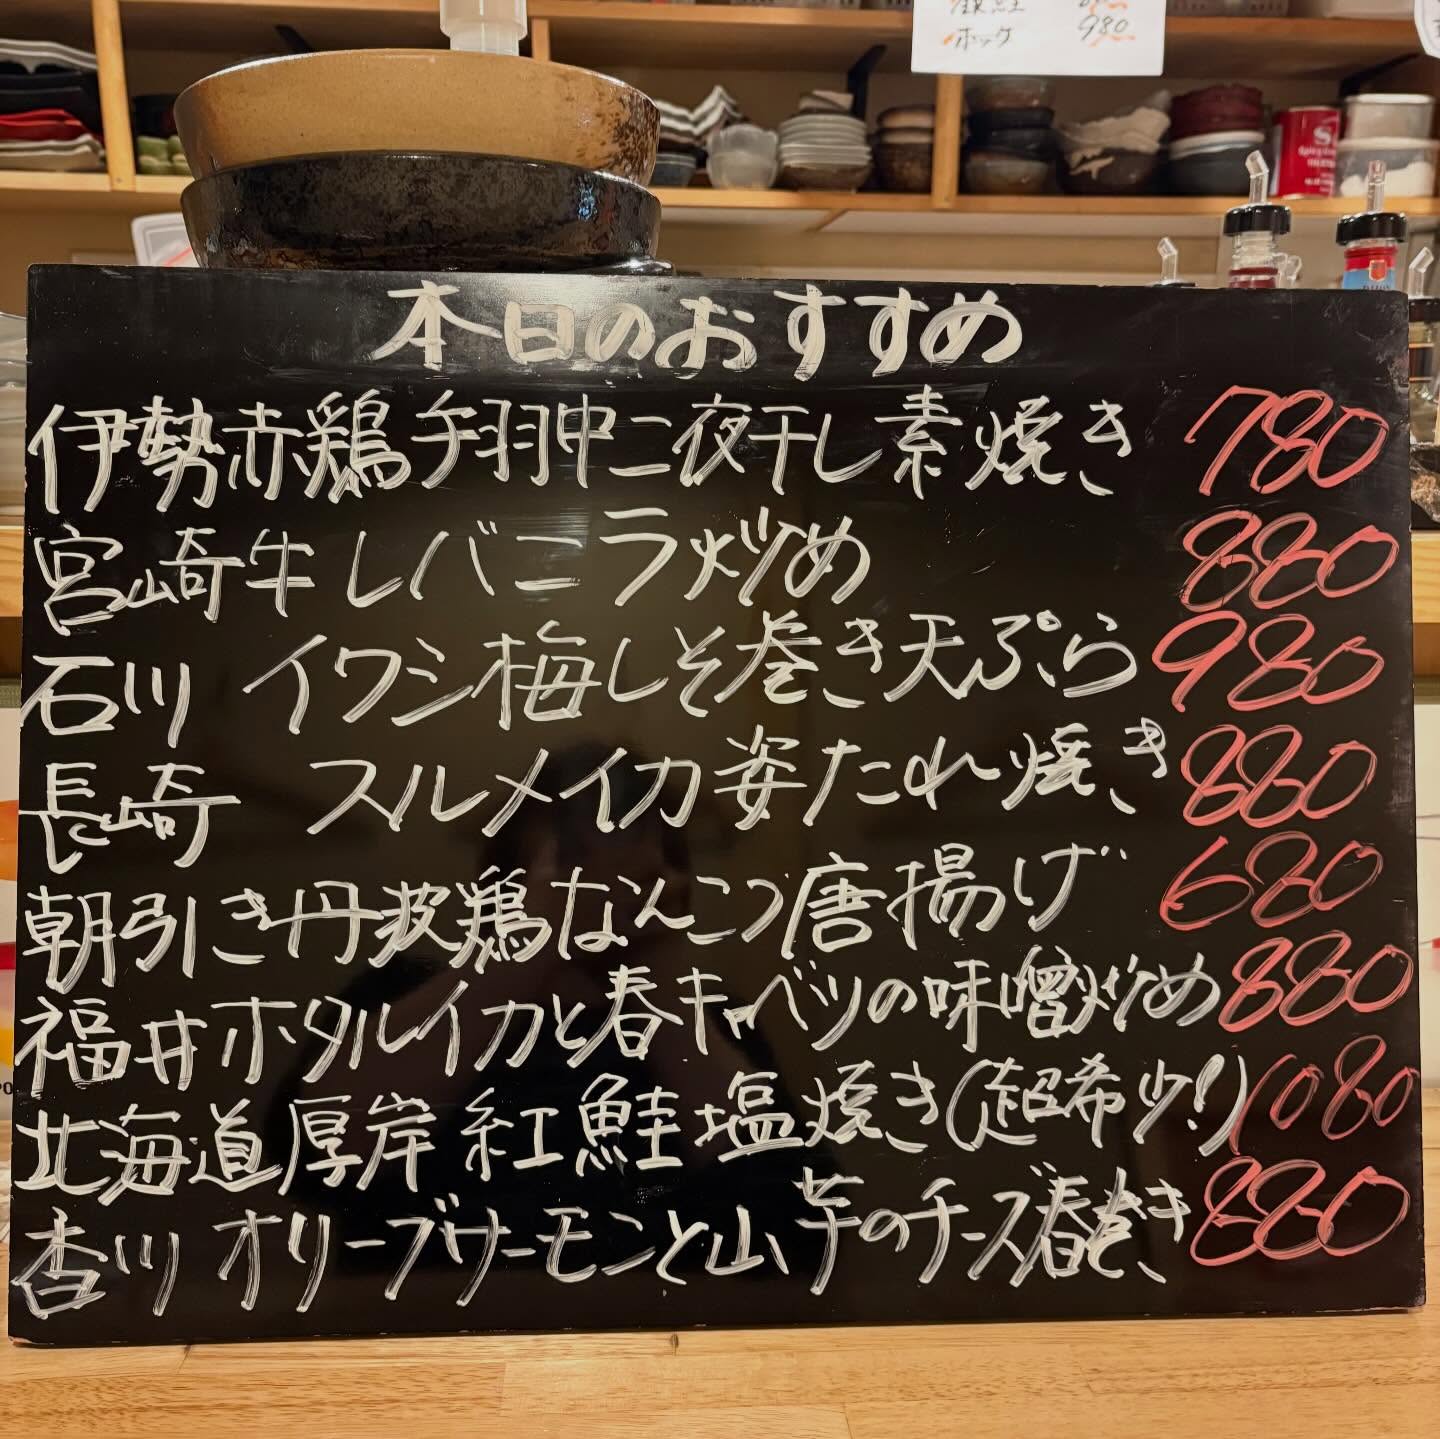 ホッケ 980
本日のおすすめ
伊勢赤鶏手羽中二夜干し素焼き 780
宮崎牛レバニラ炒め 880
石川 イワシ梅しそ巻き天ぷら 980
長崎 スルメイカ姿たれ焼き 880
朝引き丹波鶏なんこつ唐揚げ 680
福井ホタルイカと春キャベツの味噌炒め 880
北海道厚岸 紅鮭 塩焼き(超希少!) 1080
香川 オリーブサーモンと山芋のチーズ春巻き 880